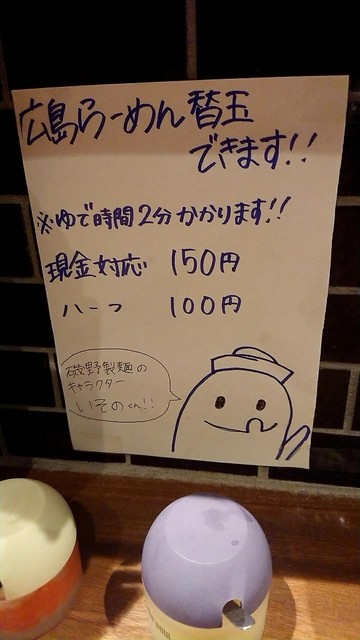 広島らーめん替玉
できます!!
※ゆで時間2分かかります!!
現金対応 150円
ハーフ 100円
磯野製麺の
キャラクター
いそのくん!!